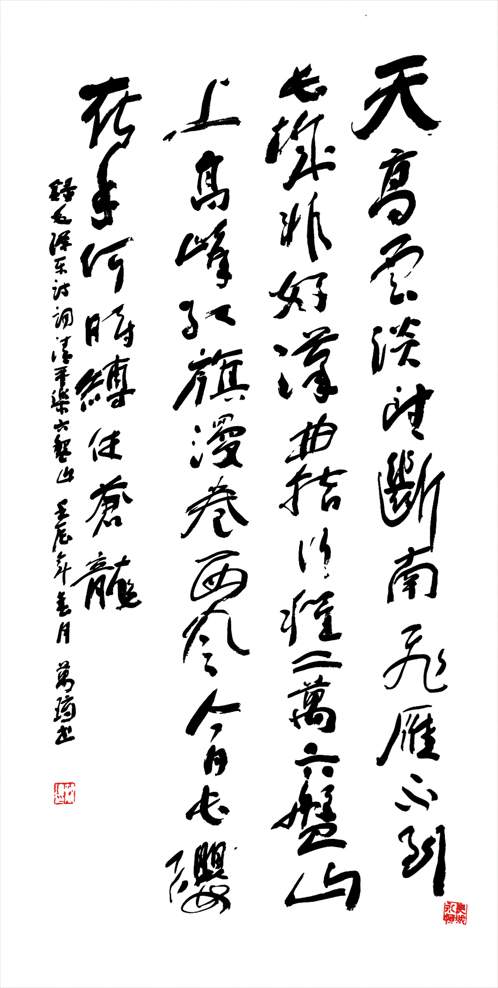 天高雲淡望斷南飛雁不到
长城非好漢曲指行程二萬六盤山
上高峰红旗漫卷西风今日长纓
在手何時縛住蒼龍
録毛澤东诗词清平樂六盤山 壬辰年春月 萬琦书